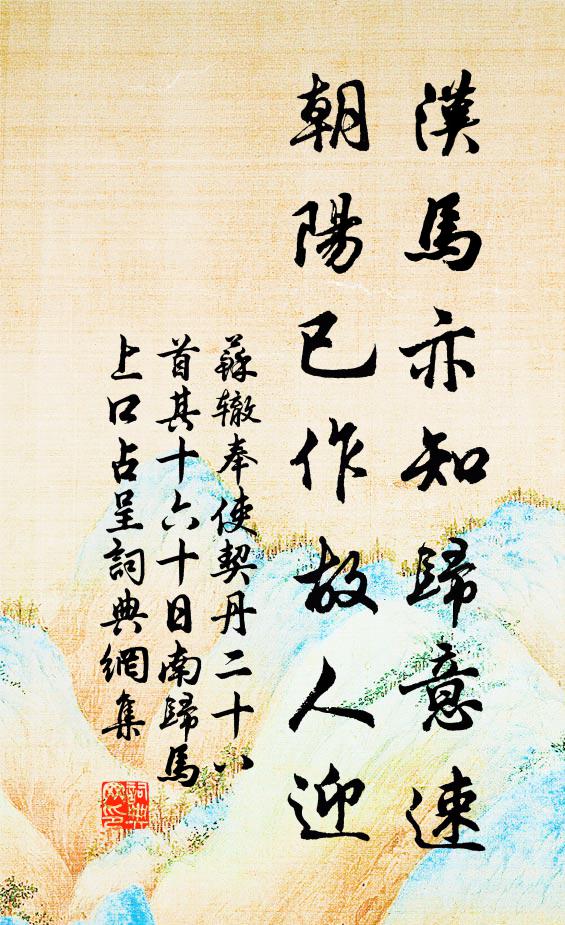 漢馬亦知歸意速
朝陽已作故人迎
蘇轍奉使契丹二十八
首其十六十日南歸馬
上口占呈詞典網集